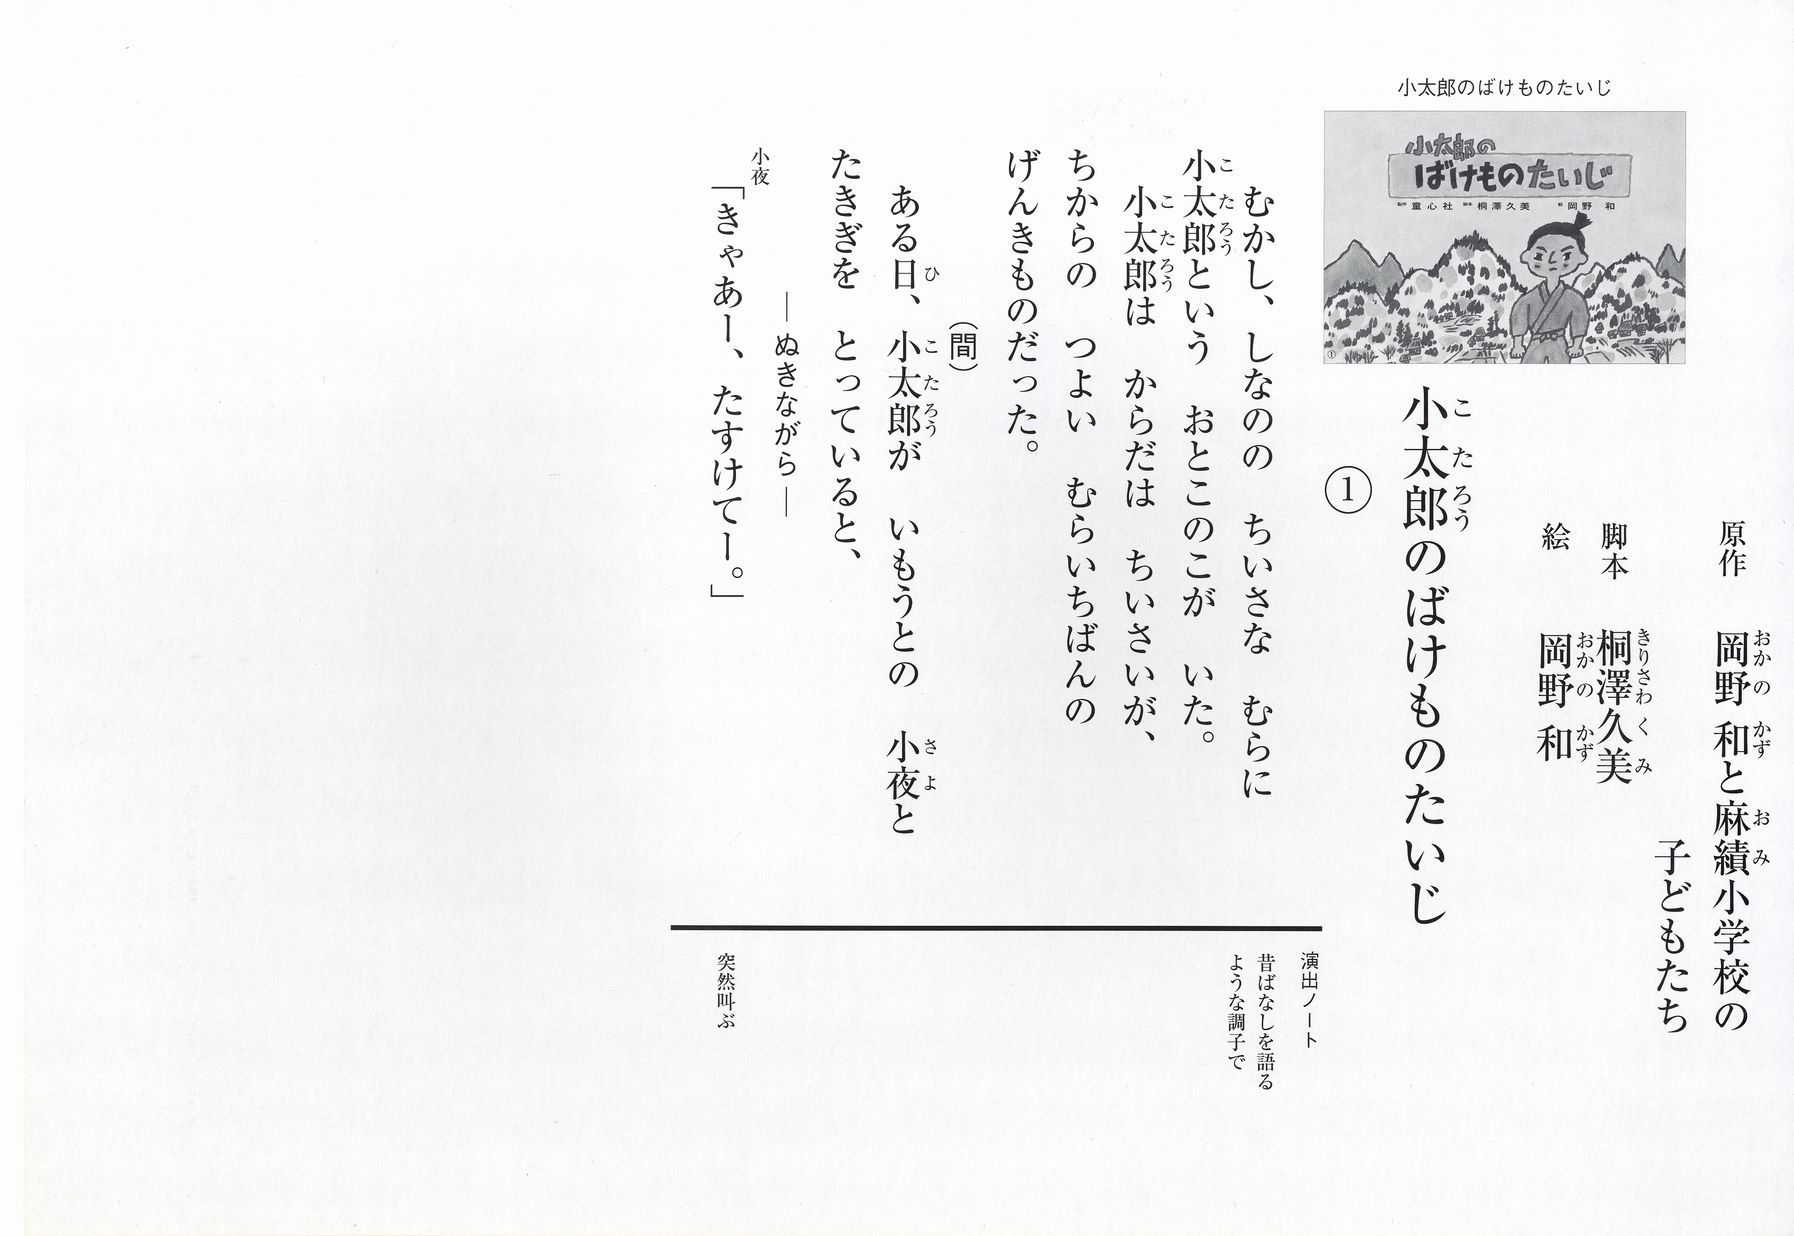 小太郎のばけものたいじ
小太郎の
ばけものたいじ
童心社 脚本 桐澤久美 絵 岡野 和
①
原作 岡野 和と麻績小学校の
おかの かず おみ
子どもたち
脚本 桐澤久美
きりさわくみ
絵 岡野 和
おかの かず
小太郎のばけものたいじ
こたろう
①
むかし、しなのの ちいさな むらに
小太郎という おとこのこが いた。
こたろう
小太郎は からだは ちいさいが、
こたろう
ちからの つよい むらいちばんの
げんきものだった。
(間)
ある日、小太郎が いもうとの 小夜と
ひ こたろう さよ
たきぎを とっていると、
―ぬきながら―
小夜
「きゃあー、たすけてー。」
演出ノート
昔ばなしを語る
ような調子で
突然叫ぶ